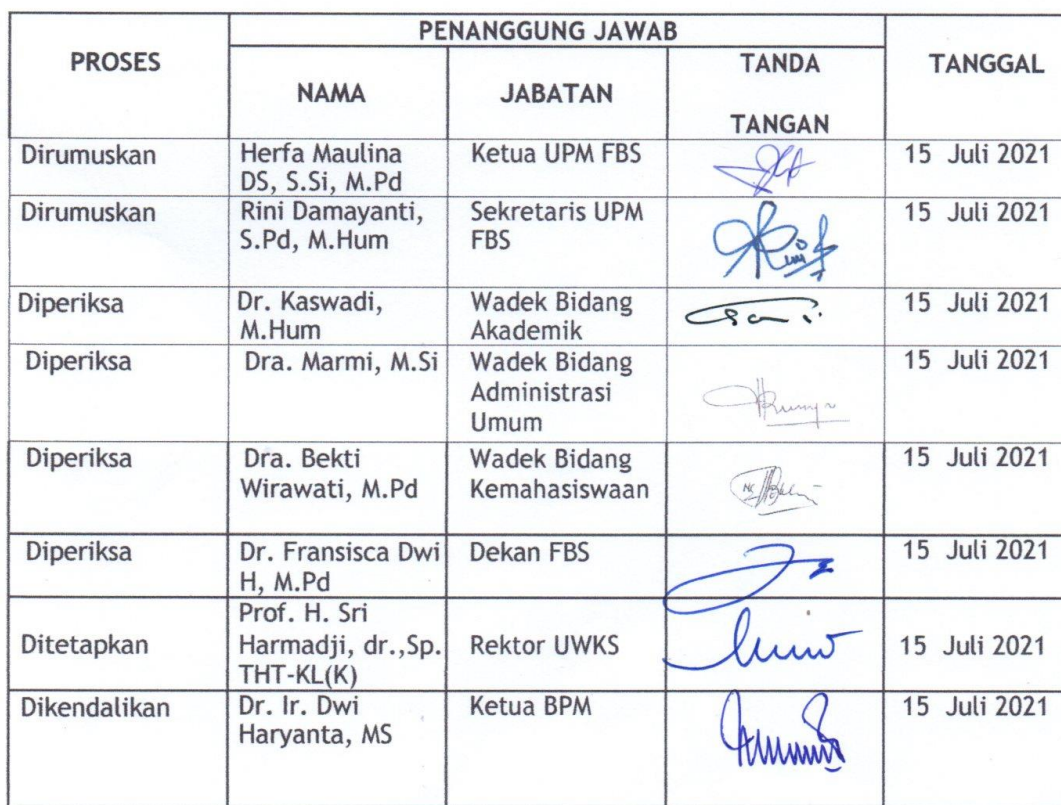 PROSES
PENANGGUNG JAWAB
TANGGAL
NAMA
JABATAN
TANDA
TANGAN
Dirumuskan
Herfa Maulina
DS, S.Si, M.Pd
Ketua UPM FBS
15 Juli 2021
Dirumuskan
Rini Damayanti,
S.Pd, M.Hum
Sekretaris UPM
FBS
15 Juli 2021
Diperiksa
Dr. Kaswadi,
M.Hum
Wadek Bidang
Akademik
15 Juli 2021
Diperiksa
Dra. Marmi, M.Si
Wadek Bidang
Administrasi
Umum
15 Juli 2021
Diperiksa
Dra. Bekti
Wirawati, M.Pd
Wadek Bidang
Kemahasiswaan
15 Juli 2021
Diperiksa
Dr. Fransisca Dwi
H, M.Pd
Dekan FBS
15 Juli 2021
Ditetapkan
Prof. H. Sri
Harmadji, dr.,Sp.
THT-KL(K)
Rektor UWKS
15 Juli 2021
Dikendalikan
Dr. Ir. Dwi
Haryanta, MS
Ketua BPM
15 Juli 2021